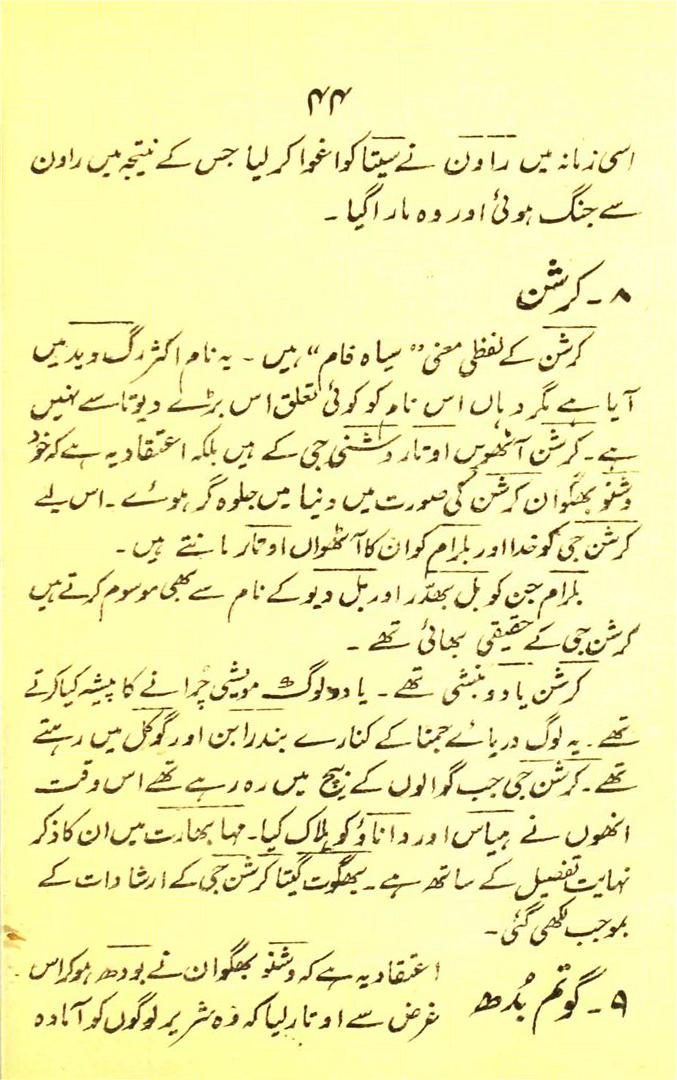 ۴۴
اسی زمانہ میں راون نے سیتا کو اغوا کر لیا جس کے نتیجہ میں راون
سے جنگ ہوئی اور وہ مارا گیا ۔
۸ ۔ کرشن
کرشن کے لفظی معنی "سیاہ فام" ہیں ۔ یہ نام اکثر رگ وید میں
آیا ہے مگر وہاں اس نام کو کوئی تعلق اس بڑے دیوتا سے نہیں
ہے ۔ کرشن آٹھویں اوتار وشنی جی کے ہیں بلکہ اعتقاد یہ ہے کہ خود
وشنو بھگوان کرشن کی صورت میں دنیا میں جلوہ گر ہوئے ۔ اس لیے
کرشن جی کو خدا اور بلرام کو ان کا آٹھواں اوتار مانتے ہیں ۔
بلرام جن کو بل بھدر اور بل دیو کے نام سے بھی موسوم کرتے ہیں
کرشن جی کے حقیقی بھائی تھے ۔
کرشن یادو بنشی تھے ۔ یادو لوگ مویشی چُرانے کا پیشہ کیا کرتے
تھے ۔ یہ لوگ دریائے جمنا کے کنارے بندرابن اور گوکل میں رہتے
تھے ۔ کرشن جی جب گوالوں کے بیچ میں رہ رہے تھے اس وقت
انھوں نے ہیاس اور داناؤ کو ہلاک کیا ۔ مہا بھارت میں ان کا ذکر
نہایت تفصیل کے ساتھ ہے ۔ بھگوت گیتا کرشن جی کے ارشادات کے
بموجب لکھی گئی ۔
۹ ۔ گوتم بُدھ
اعتقاد یہ ہے کہ وشنو بھگوان نے بودھ ہو کر اس
غرض سے اوتار لیا کہ وہ شریر لوگوں کو آمادہ